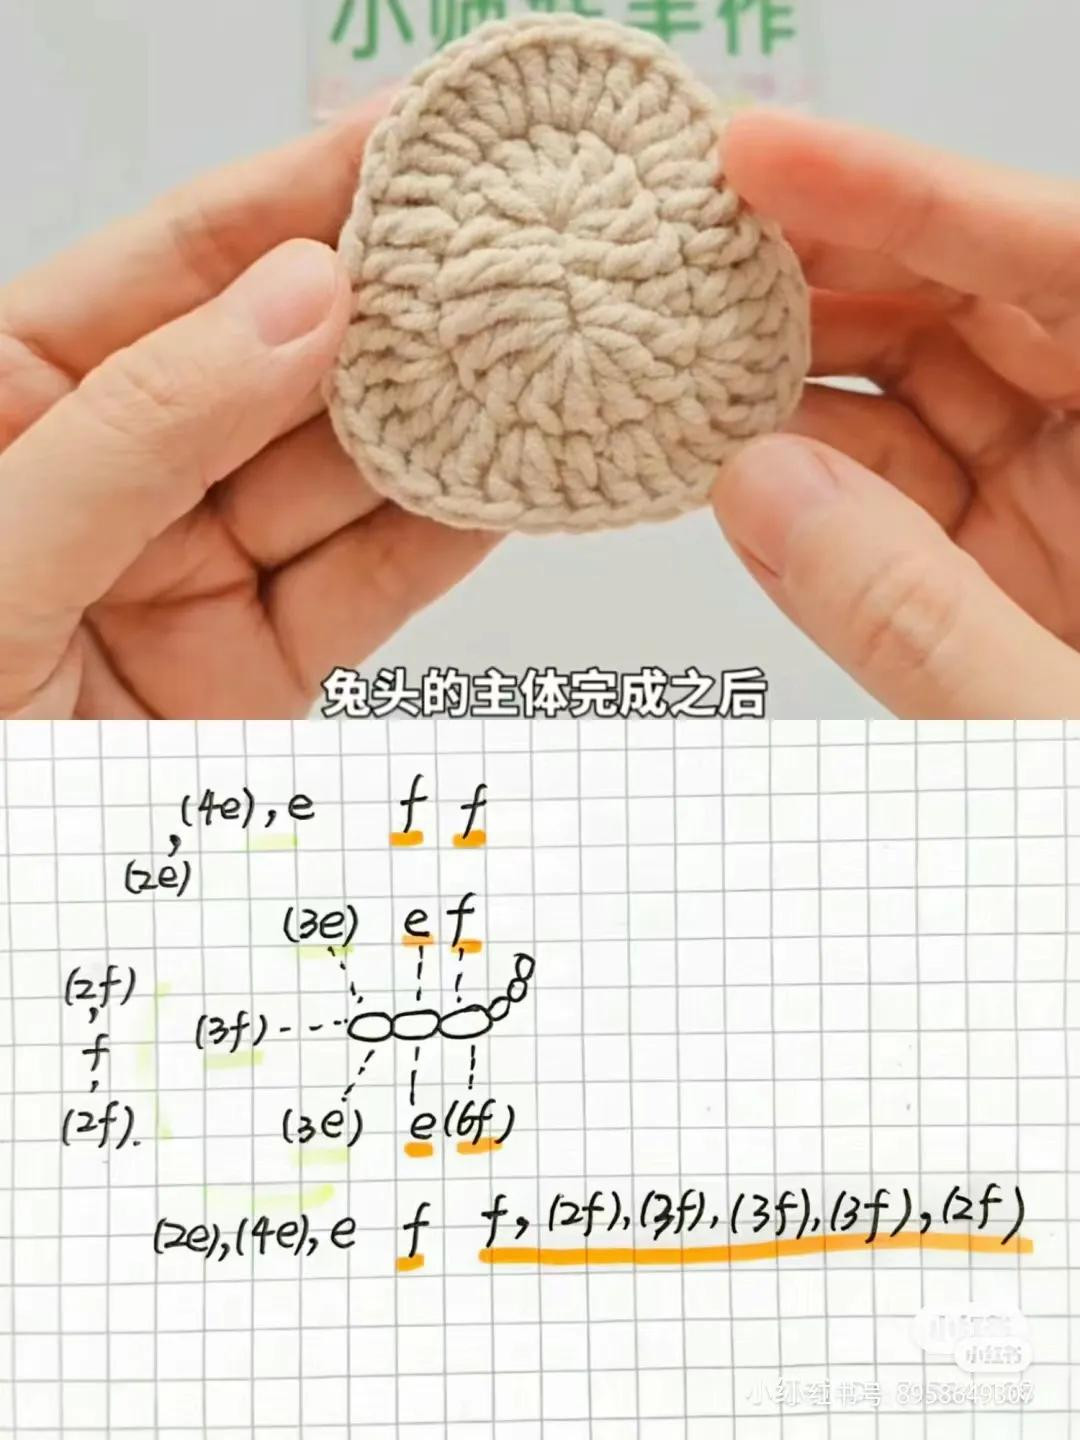 小师妹手作
兔头的主体完成之后
(4e), e f f
,
(2e)
(3e) e f
(2f)
,
(3f)
f
,
(2f).
(3e) e (6f)
(2e), (4e), e f f, (2f), (3f), (3f), (3f), (2f)
小红书
小红书
小红书号: 8958649307